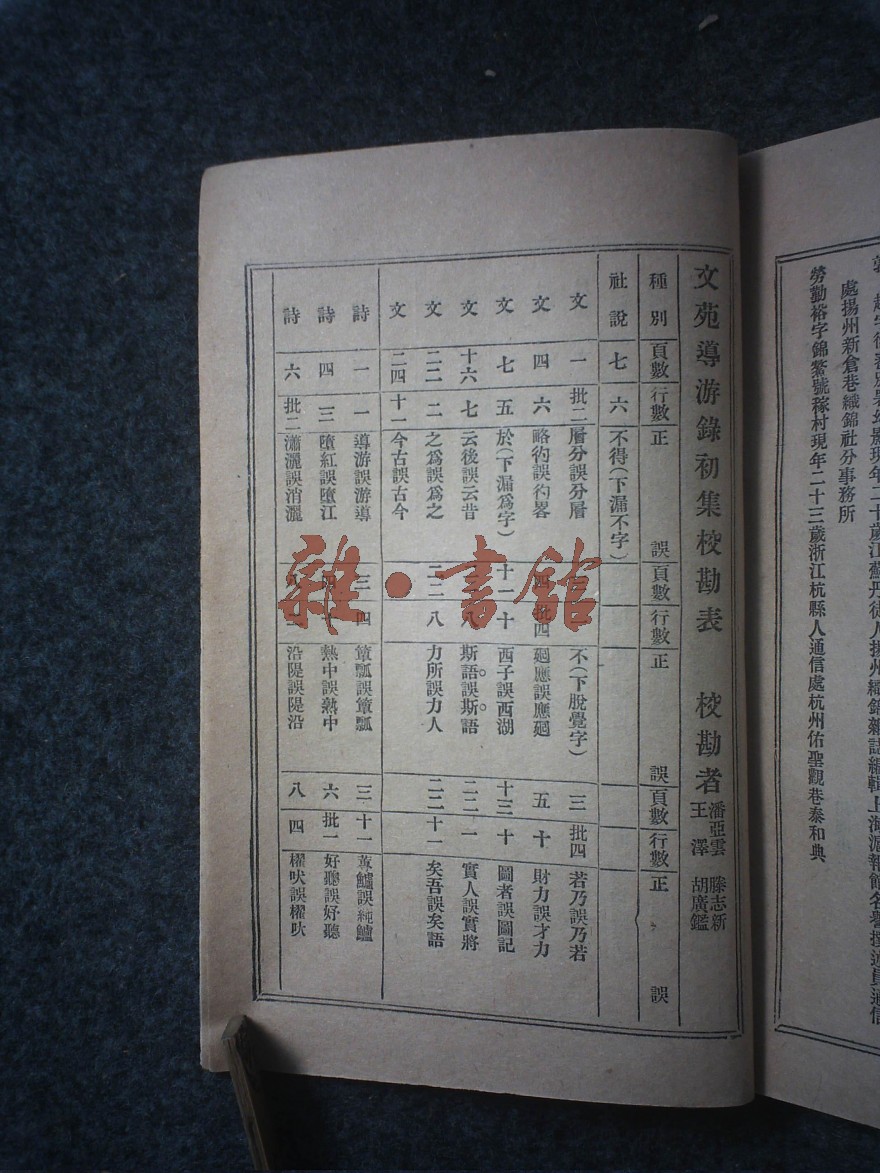 處揚州新倉巷織錦社分事務所
勞勤裕字錦鰲號稼村現年二十三歲浙江杭縣人通信處杭州佑聖觀巷泰和典
文苑導游錄初集校勘表 校勘者 潘亞雲 滕志新 王澤 胡廣鑑
種別 頁數 行數 正 誤 頁數 行數 正 誤 頁數 行數 正 誤
社說 七 六 不得(下漏不字)
文 一 批二 層分誤分層 不(下脫覺字) 三 批四 若乃誤乃若
文 四 六 略彴誤彴畧 四 批四 廻應誤應廻 五 十 財力誤才力
文 七 五 於(下漏爲字) 十一 十 西子誤西湖 十三 十 圖者誤圖記
文 十六 七 云後誤云昔 八 斯語。誤斯。語 二二 一 實人誤實將
文 二二 二 之爲誤爲之 二二 八 力所誤力人 二二 十一 矣吾誤矣語
文 二四 十一 今古誤古今
詩 一 一 導游誤游導 三 四 簞瓢誤簞瓢 三 十一 蓴鱸誤純鱸
詩 四 三 墮紅誤墮江 熱中誤熱中 六 批一 好聽誤好聽
詩 六 批二 瀟灑誤消灑 沿隄誤隄沿 八 四 櫂吠誤櫂吠
雜·書館